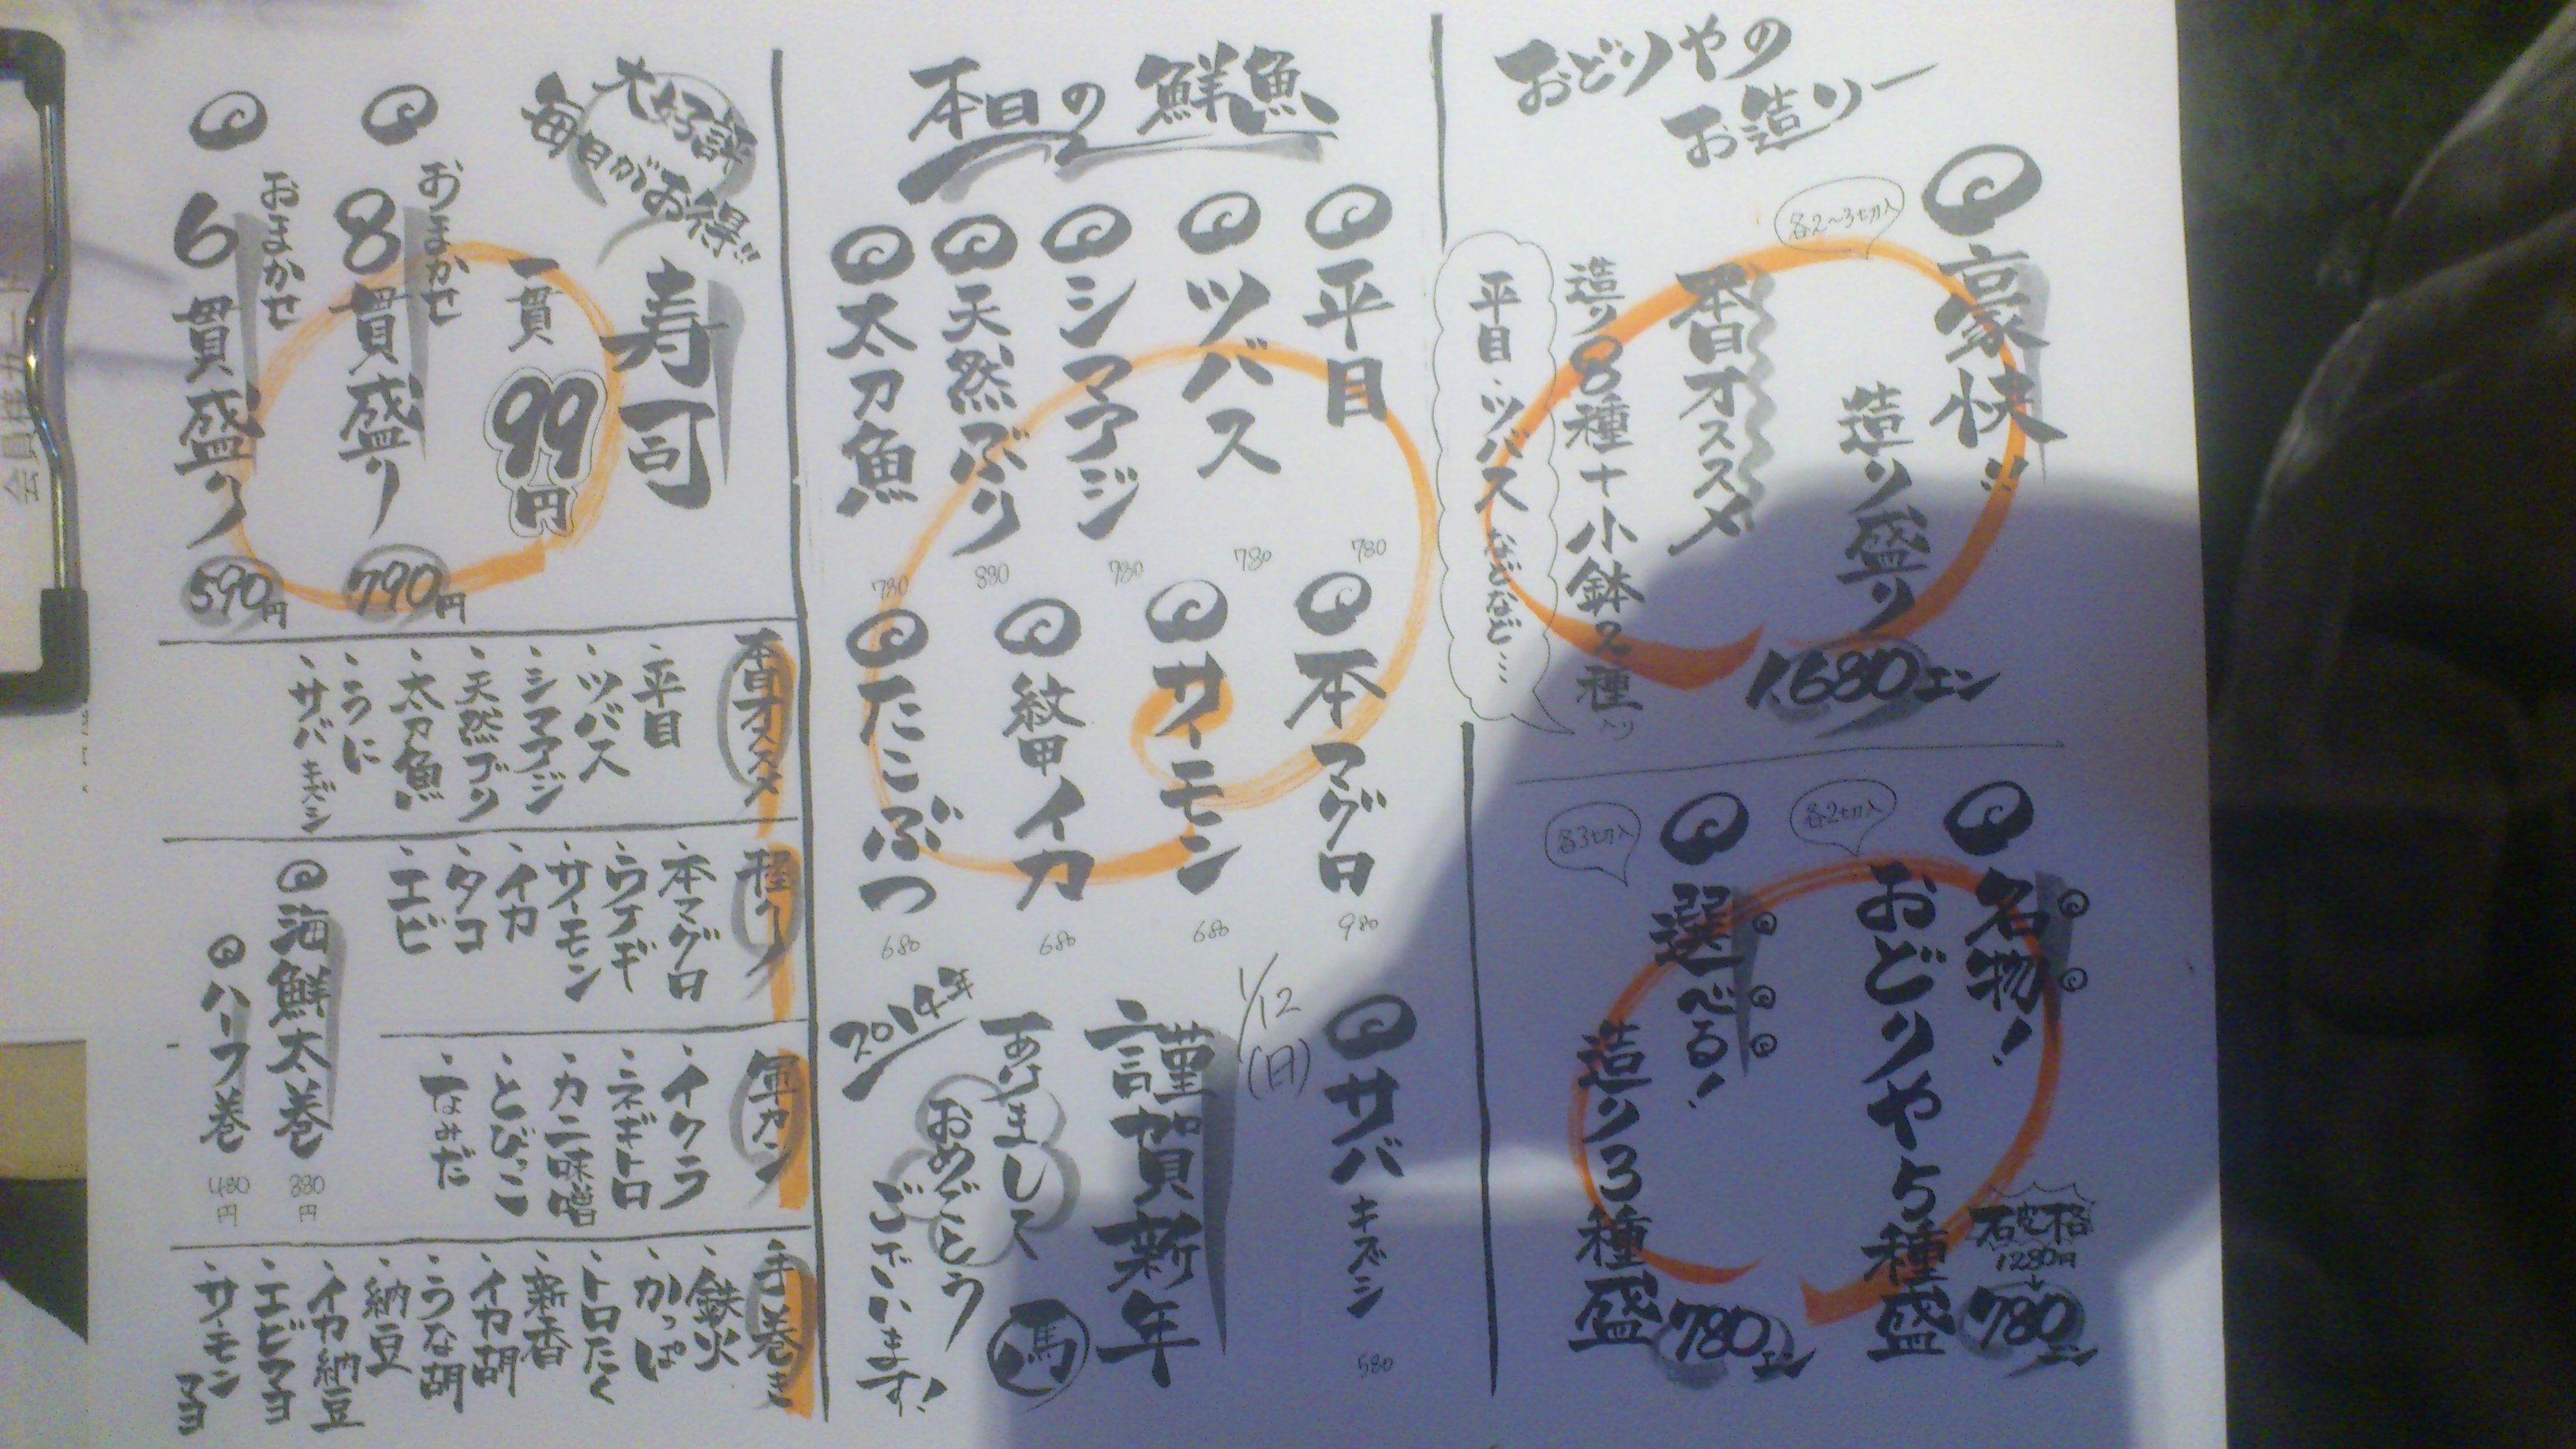 おどりやの
お造り
豪快!!
造り盛り
1,680エン
各2〜3切入
本日オススメ
造り8種+小鉢2種入り
平目・ツバスなどなど…
名物!
おどりや5種盛
破格
1280円
780エン
各2切入
選べる!
造り3種盛
780エン
各3切入
本日の鮮魚
平目
780
ツバス
780
シマアジ
780
天然ぶり
880
太刀魚
780
本マグロ
980
サーモン
680
紋甲イカ
680
たこぶつ
680
サバキズシ
580
1/12
(日)
謹賀新年
馬
あけまして
おめでとう
ございます!
2014年
大好評
毎日がお得!!
寿司
一貫
99円
おまかせ
8貫盛り
790円
おまかせ
6貫盛り
590円
本日オススメ
・平目
・ツバス
・シマアジ
・天然ブリ
・太刀魚
・うに
・サバキズシ
握り
・本マグロ
・ウナギ
・サーモン
・イカ
・タコ
・エビ
軍カン
・イクラ
・ネギトロ
・カニ味噌
・とびっこ
・なみだ
海鮮太巻
880円
ハーフ巻
480円
手巻き
・鉄火
・かっぱ
・トロたく
・新香
・イカ胡
・うな胡
・納豆
・イカ納豆
・エビマヨ
・サーモンマヨ